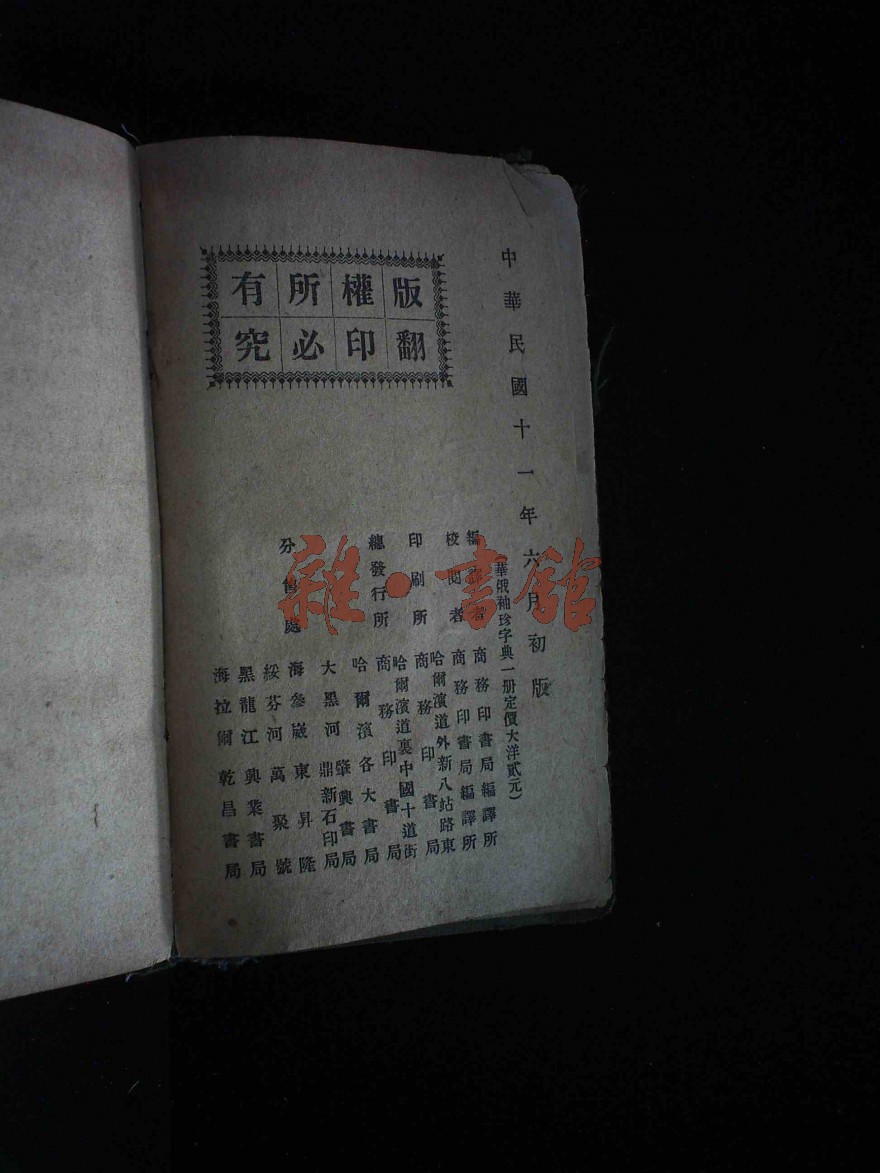 中華民國十一年六月初版
版權所有
翻印必究
(華俄袖珍字典一册定價大洋貳元)
編譯者 商務印書局編譯所
校閱者 商務印書局編譯所
哈爾濱道外新八站路東
印刷所 商務印書局
哈爾濱道裏中國十道街
總發行所 商務印書局
分售處 哈爾濱各大書局
肇興書局
大黑河 鼎新石印局
海參崴 東昇隆
綏芬河 萬聚號
黑龍江 興業書局
海拉爾 乾昌書局
雜·書館